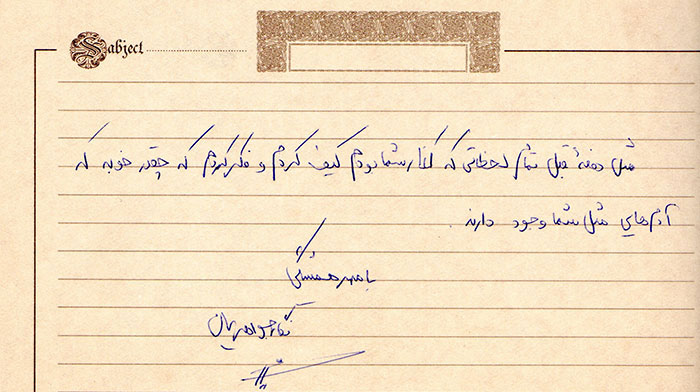 Subject
مثل دفعهٔ قبل تمام لحظاتی که کنار شما بودم کیف کردم و فکر کردم که چقدر خوبه که
آدم‌هایی مثل شما وجود دارند.
با مهر همیشگی
نگار جواهریان